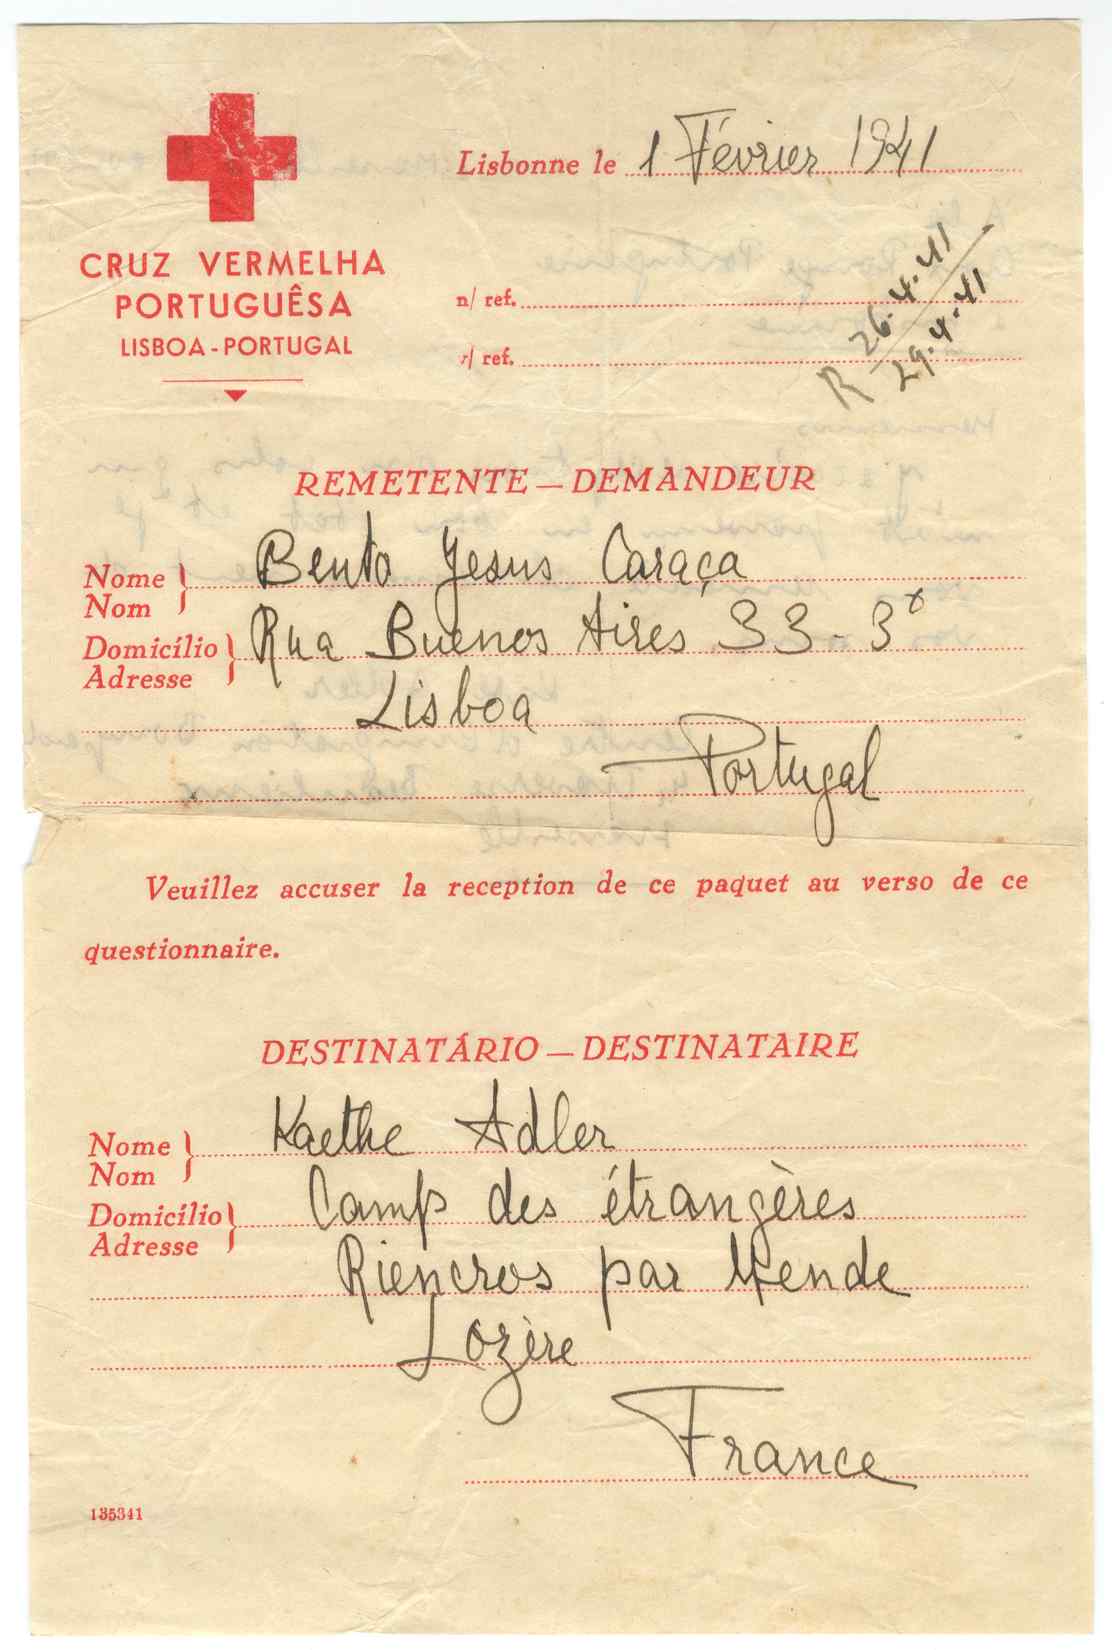 CRUZ VERMELHA
PORTUGUÊSA
LISBOA - PORTUGAL
Lisbonne le 1 Février 1941
n/ ref.
v/ ref.
R 26.4.41
29.4.41
REMETENTE — DEMANDEUR
Nome
Nom
Bento Jesus Caraça
Domicílio
Adresse
Rua Buenos Aires 33-3º
Lisboa
Portugal
Veuillez accuser la reception de ce paquet au verso de ce
questionnaire.
DESTINATÁRIO — DESTINATAIRE
Nome
Nom
Kaethe Adler
Domicílio
Adresse
Camp des étrangères
Riencros par Mende
Lozère
France
135341